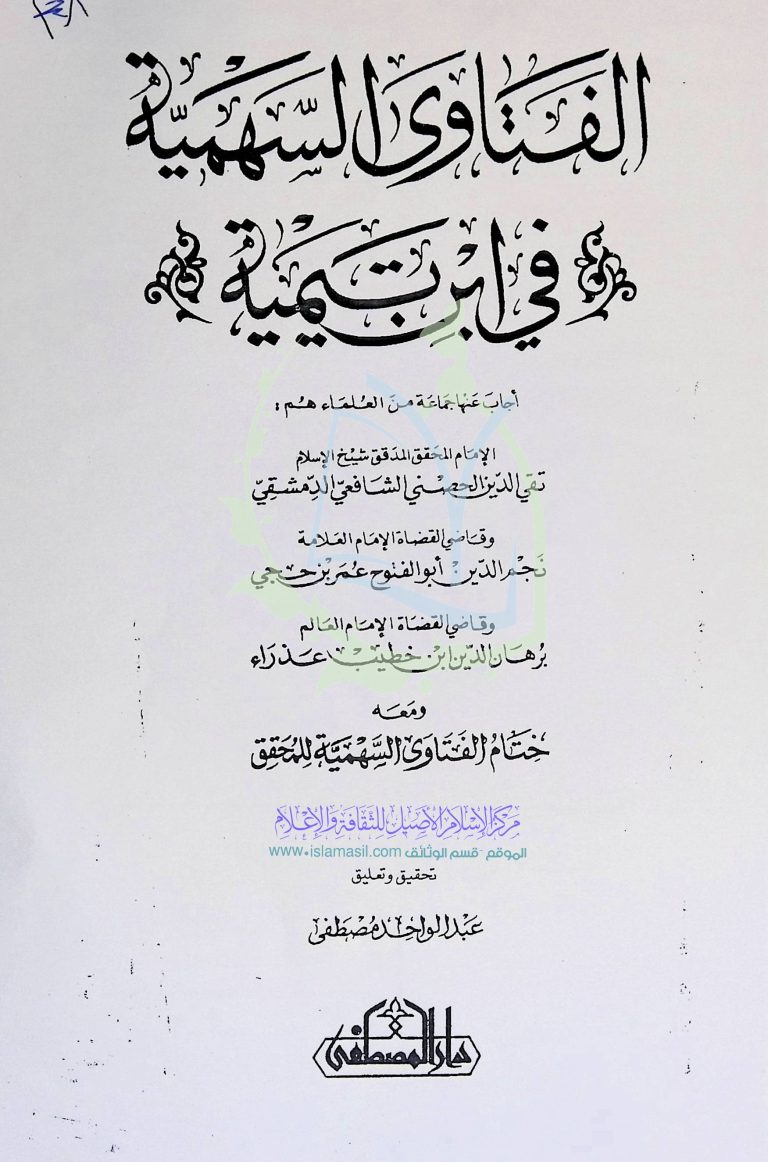 الفَتَاوَى السَّهْمِيَّة
في ابْنِ تَيْمِيَّة
أجابَ عَنها جَمَاعَة مِنَ العُلمَاء هُم :
الإمَام المحَقق المدَقق شيخ الإسلام
تقي الدّين الحصْني الشافعيّ الدِّمشقيّ
وقاضي القضاة الإمام العَلامة
نَجْم الدّين أبو الفتوح عمَر بن حجي
وقاضي القضاة الإمَام العَالم
بُرهَان الدّين ابن خطيب عذرَاء
ومَعَه
ختَامُ الفَتَاوى السَّهْمِيَّة لِلمُحَقِق
مركز الإسلام الأصيل للثقافة والإعلام
الموقع - قسم الوثائق www.islamasil.com
تحقيق وتعليق
عَبد الواحِد مُصْطَفى
دار المصطفى